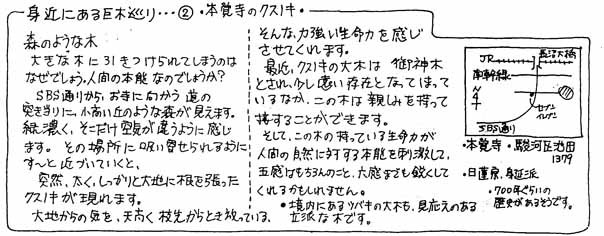 身近にある巨木巡り…② ・本覚寺のクスノキ・
森のような木
大きな木に引きつけられてしまうのは
なぜでしょう。人間の本能なのでしょうか?
SBS通りから、お寺に向かう道の
突き当りに、小高い丘のような森が見えます。
緑濃く、そこだけ空気が違うように感じ
ます。その場所に吸い寄せられるように
すーっと近づいていくと、
突然、太く、しっかりと大地に根を張った
クスノキが現れます。
大地からの気を、天高く枝先からとき放っている、
そんな力強い生命力を感じ
させてくれます。
最近、クスノキの大木は御神木
とされ、少し遠い存在となってしまって
いるなか、この木は親しみを持って
接することができます。
そして、この木の持っている生命力が
人間の自然に対する本能を刺激して、
五感はもちろんのこと、六感までも鋭くして
くれるかもしれません。
・境内にあるツバキの大木も、見応えのある
立派な木です。
JR
新幹線
N
セブン
イレブン
SBS通り
・本覚寺・駿河区池田
1379
・日蓮宗、身延派
・700年ぐらいの
歴史があるそうです。